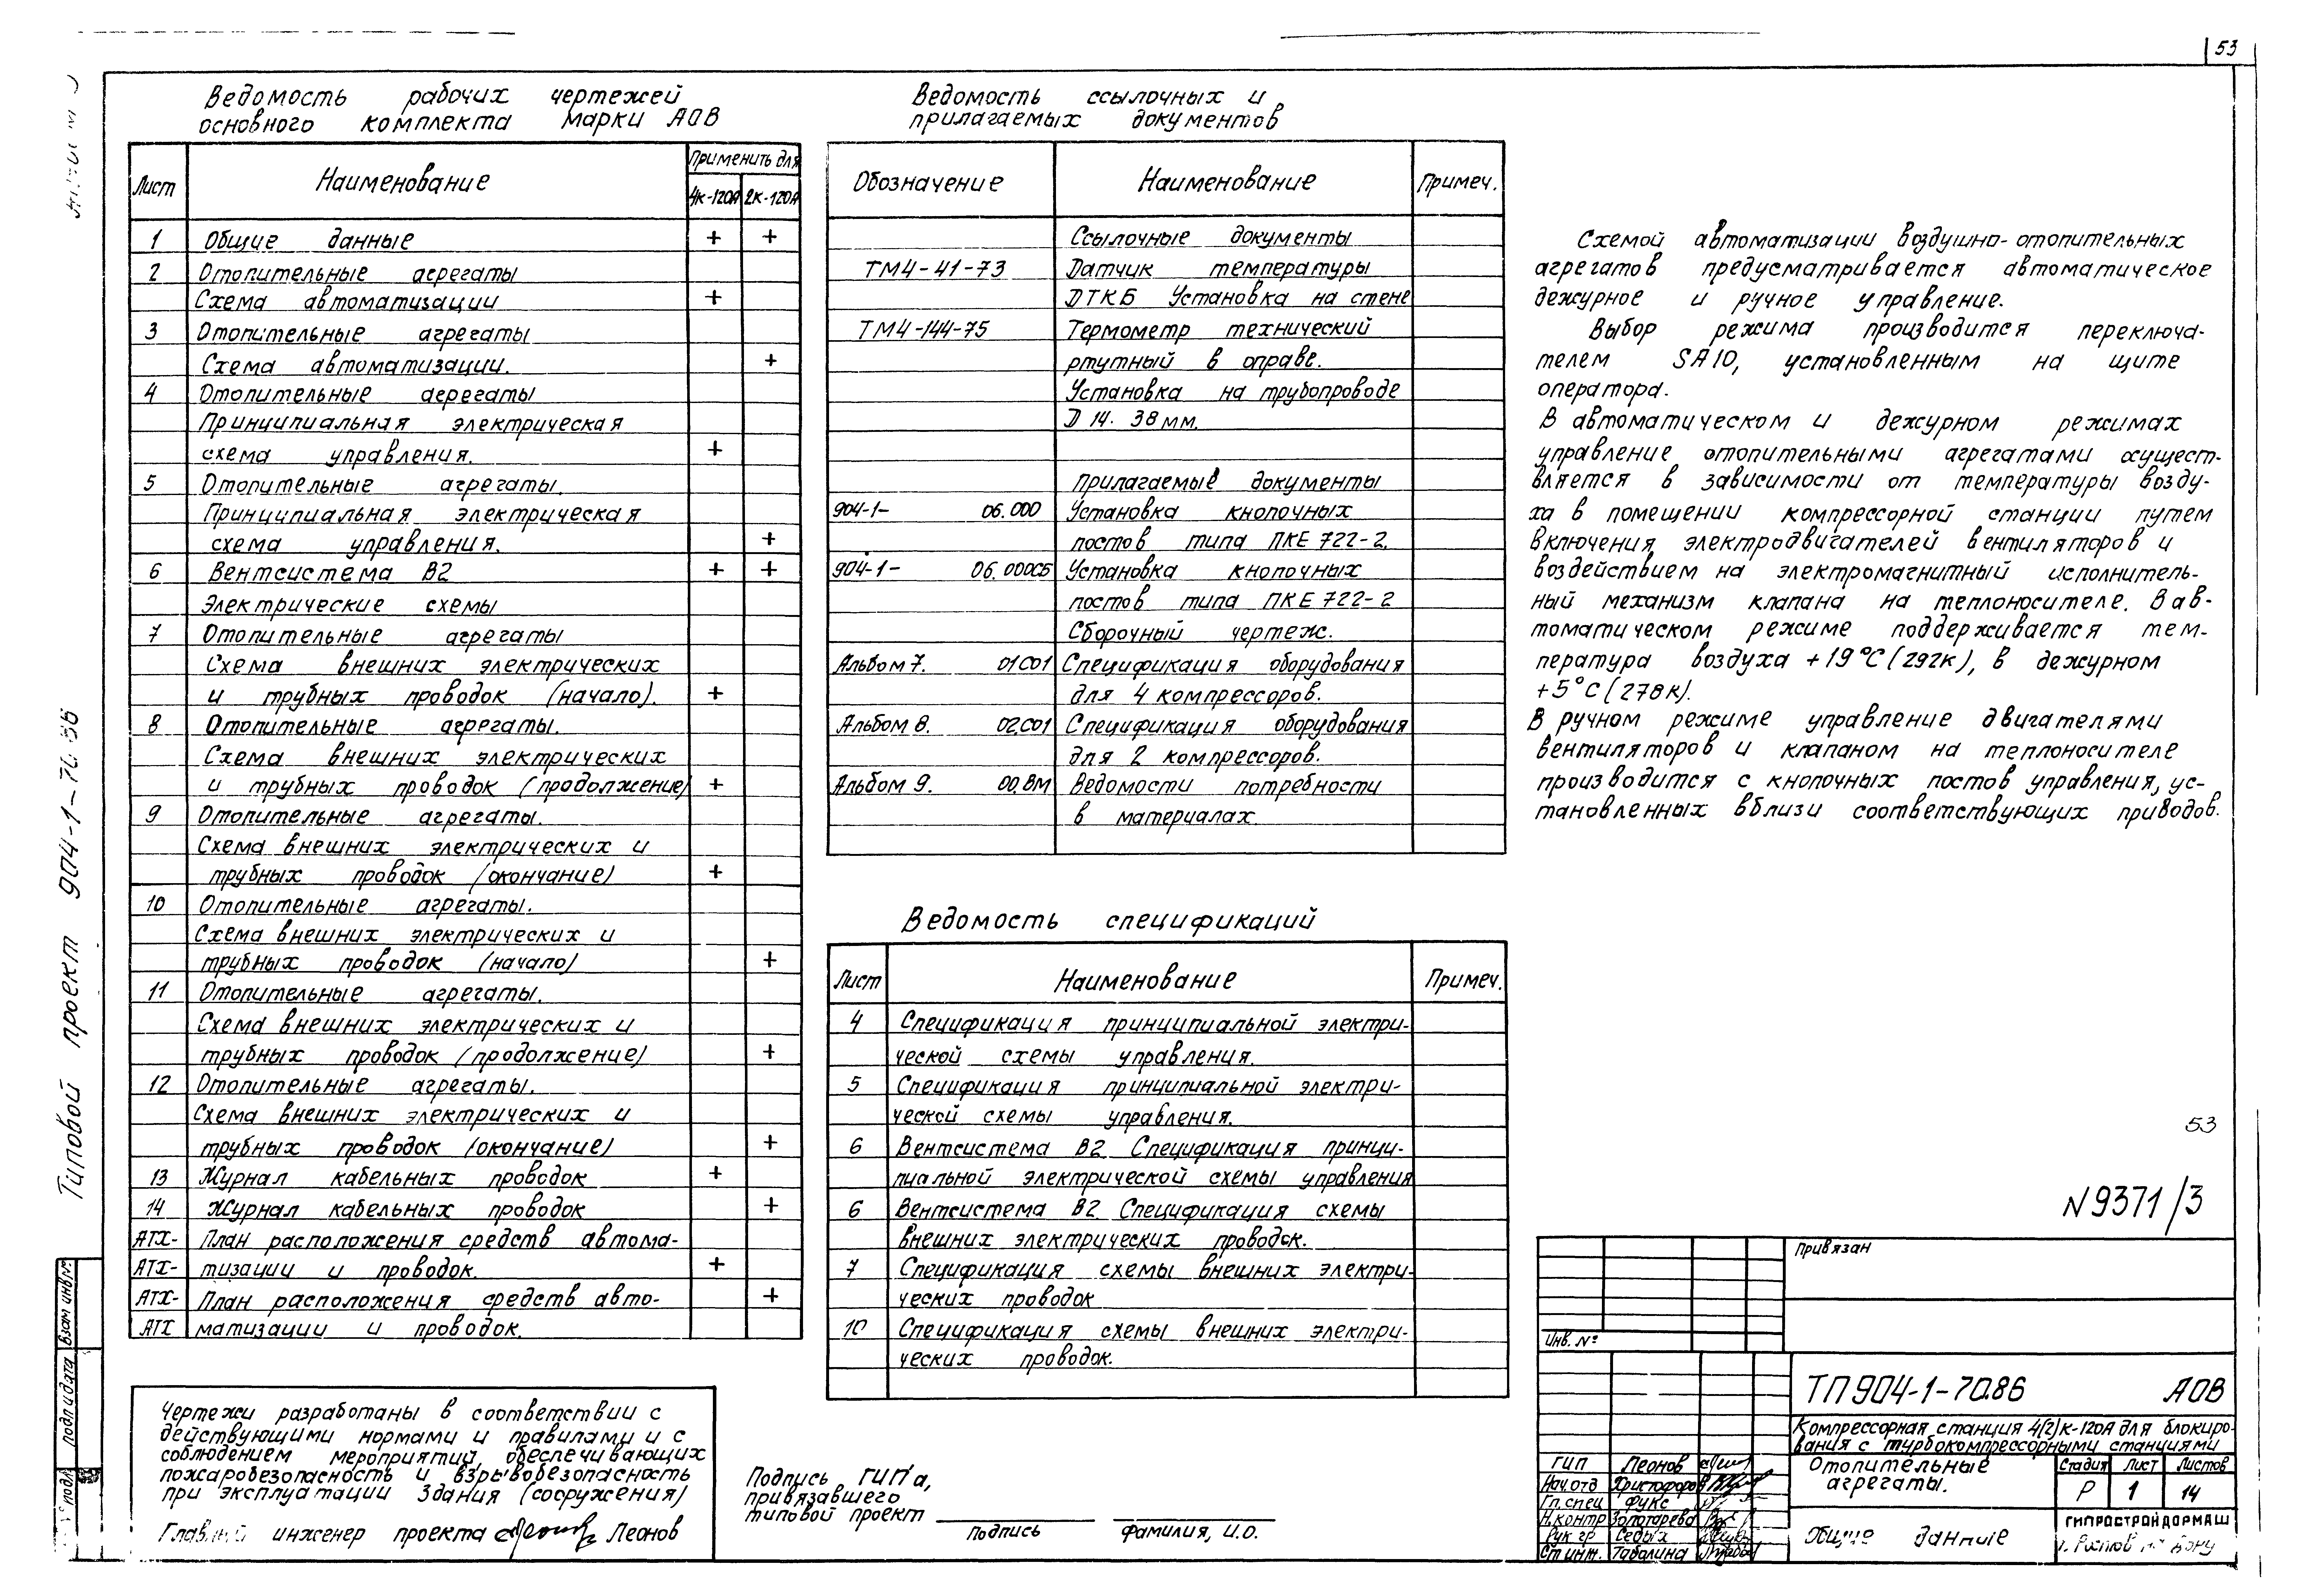 53
Ведомость рабочих чертежей
основного комплекта марки АОВ
Лист Наименование Применить для
4к-120А 2к-120А
1 Общие данные + +
2 Отопительные агрегаты
Схема автоматизации +
3 Отопительные агрегаты
Схема автоматизации. +
4 Отопительные агрегаты
Принципиальная электрическая
схема управления. +
5 Отопительные агрегаты.
Принципиальная электрическая
схема управления. +
6 Вентсистема В2 + +
Электрические схемы
7 Отопительные агрегаты
Схема внешних электрических
и трубных проводок (начало). +
8 Отопительные агрегаты.
Схема внешних электрических
и трубных проводок (продолжение) +
9 Отопительные агрегаты.
Схема внешних электрических и
трубных проводок (окончание) +
10 Отопительные агрегаты.
Схема внешних электрических и
трубных проводок (начало) +
11 Отопительные агрегаты.
Схема внешних электрических и
трубных проводок (продолжение) +
12 Отопительные агрегаты.
Схема внешних электрических и
трубных проводок (окончание) +
13 Журнал кабельных проводок +
14 Журнал кабельных проводок +
АТХ- План расположения средств автома-
АТХ- тизации и проводок. +
АТХ- План расположения средств авто- +
АТХ матизации и проводок.
Чертежи разработаны в соответствии с
действующими нормами и правилами и с
соблюдением мероприятий, обеспечивающих
пожаробезопасность и взрывобезопасность
при эксплуатации здания (сооружения)
Главный инженер проекта Леонов
Ведомость ссылочных и
прилагаемых документов
Обозначение Наименование Примеч.
Ссылочные документы
ТМ4-41-73 Датчик температуры
ДТКБ Установка на стене
ТМ4-144-75 Термометр технический
ртутный в оправе.
Установка на трубопроводе
D 14. 38 мм.
Прилагаемые документы
904-1- 06.000 Установка кнопочных
постов типа ПКЕ 722-2.
904-1- 06.000СБ Установка кнопочных
постов типа ПКЕ 722-2
Сборочный чертеж.
Альбом 7. 01СО1 Спецификация оборудования
для 4 компрессоров.
Альбом 8. 02.СО1 Спецификация оборудования
для 2 компрессоров.
Альбом 9. 00.ВМ Ведомости потребности
в материалах
Ведомость спецификаций
Лист Наименование Примеч.
4 Спецификация принципиальной электри-
ческой схемы управления.
5 Спецификация принципиальной электри-
ческой схемы управления.
6 Вентсистема В2 Спецификация принци-
пиальной электрической схемы управления
6 Вентсистема В2 Спецификация схемы
внешних электрических проводок.
7 Спецификация схемы внешних электри-
ческих проводок
10 Спецификация схемы внешних электри-
ческих проводок.
Подпись ГИП'а,
привязавшего
типовой проект
подпись фамилия, И.О.
Схемой автоматизации воздушно-отопительных
агрегатов предусматривается автоматическое
дежурное и ручное управление.
Выбор режима производится переключа-
телем SA10, установленным на щите
оператора.
В автоматическом и дежурном режимах
управление отопительными агрегатами осущест-
вляется в зависимости от температуры возду-
ха в помещении компрессорной станции путем
включения электродвигателей вентиляторов и
воздействием на электромагнитный исполнитель-
ный механизм клапана на теплоносителе. В ав-
томатическом режиме поддерживается тем-
пература воздуха +19°С (292к), в дежурном
+5°С (278к).
В ручном режиме управление двигателями
вентиляторов и клапаном на теплоносителе
производится с кнопочных постов управления, ус-
тановленных вблизи соответствующих приводов.
53
N 9371/3
Привязан
Инв. №
ТП 904-1-70.86 АОВ
Компрессорная станция 4(2)к-120А для блокиро-
вания с турбокомпрессорными станциями
ГИП Леонов
Нач.отд Христофоров
Гл.спец Фукс
Н.контр Золотарева
Рук гр Седых
Ст инж. Табалина
Отопительные
агрегаты.
Стадия Лист Листов
Р 1 14
Общие данные
ГИПРОСТРОЙДОРМАШ
г. Ростов на Дону
Типовой проект 904-1-70.86
Взам инв №
Подп и дата